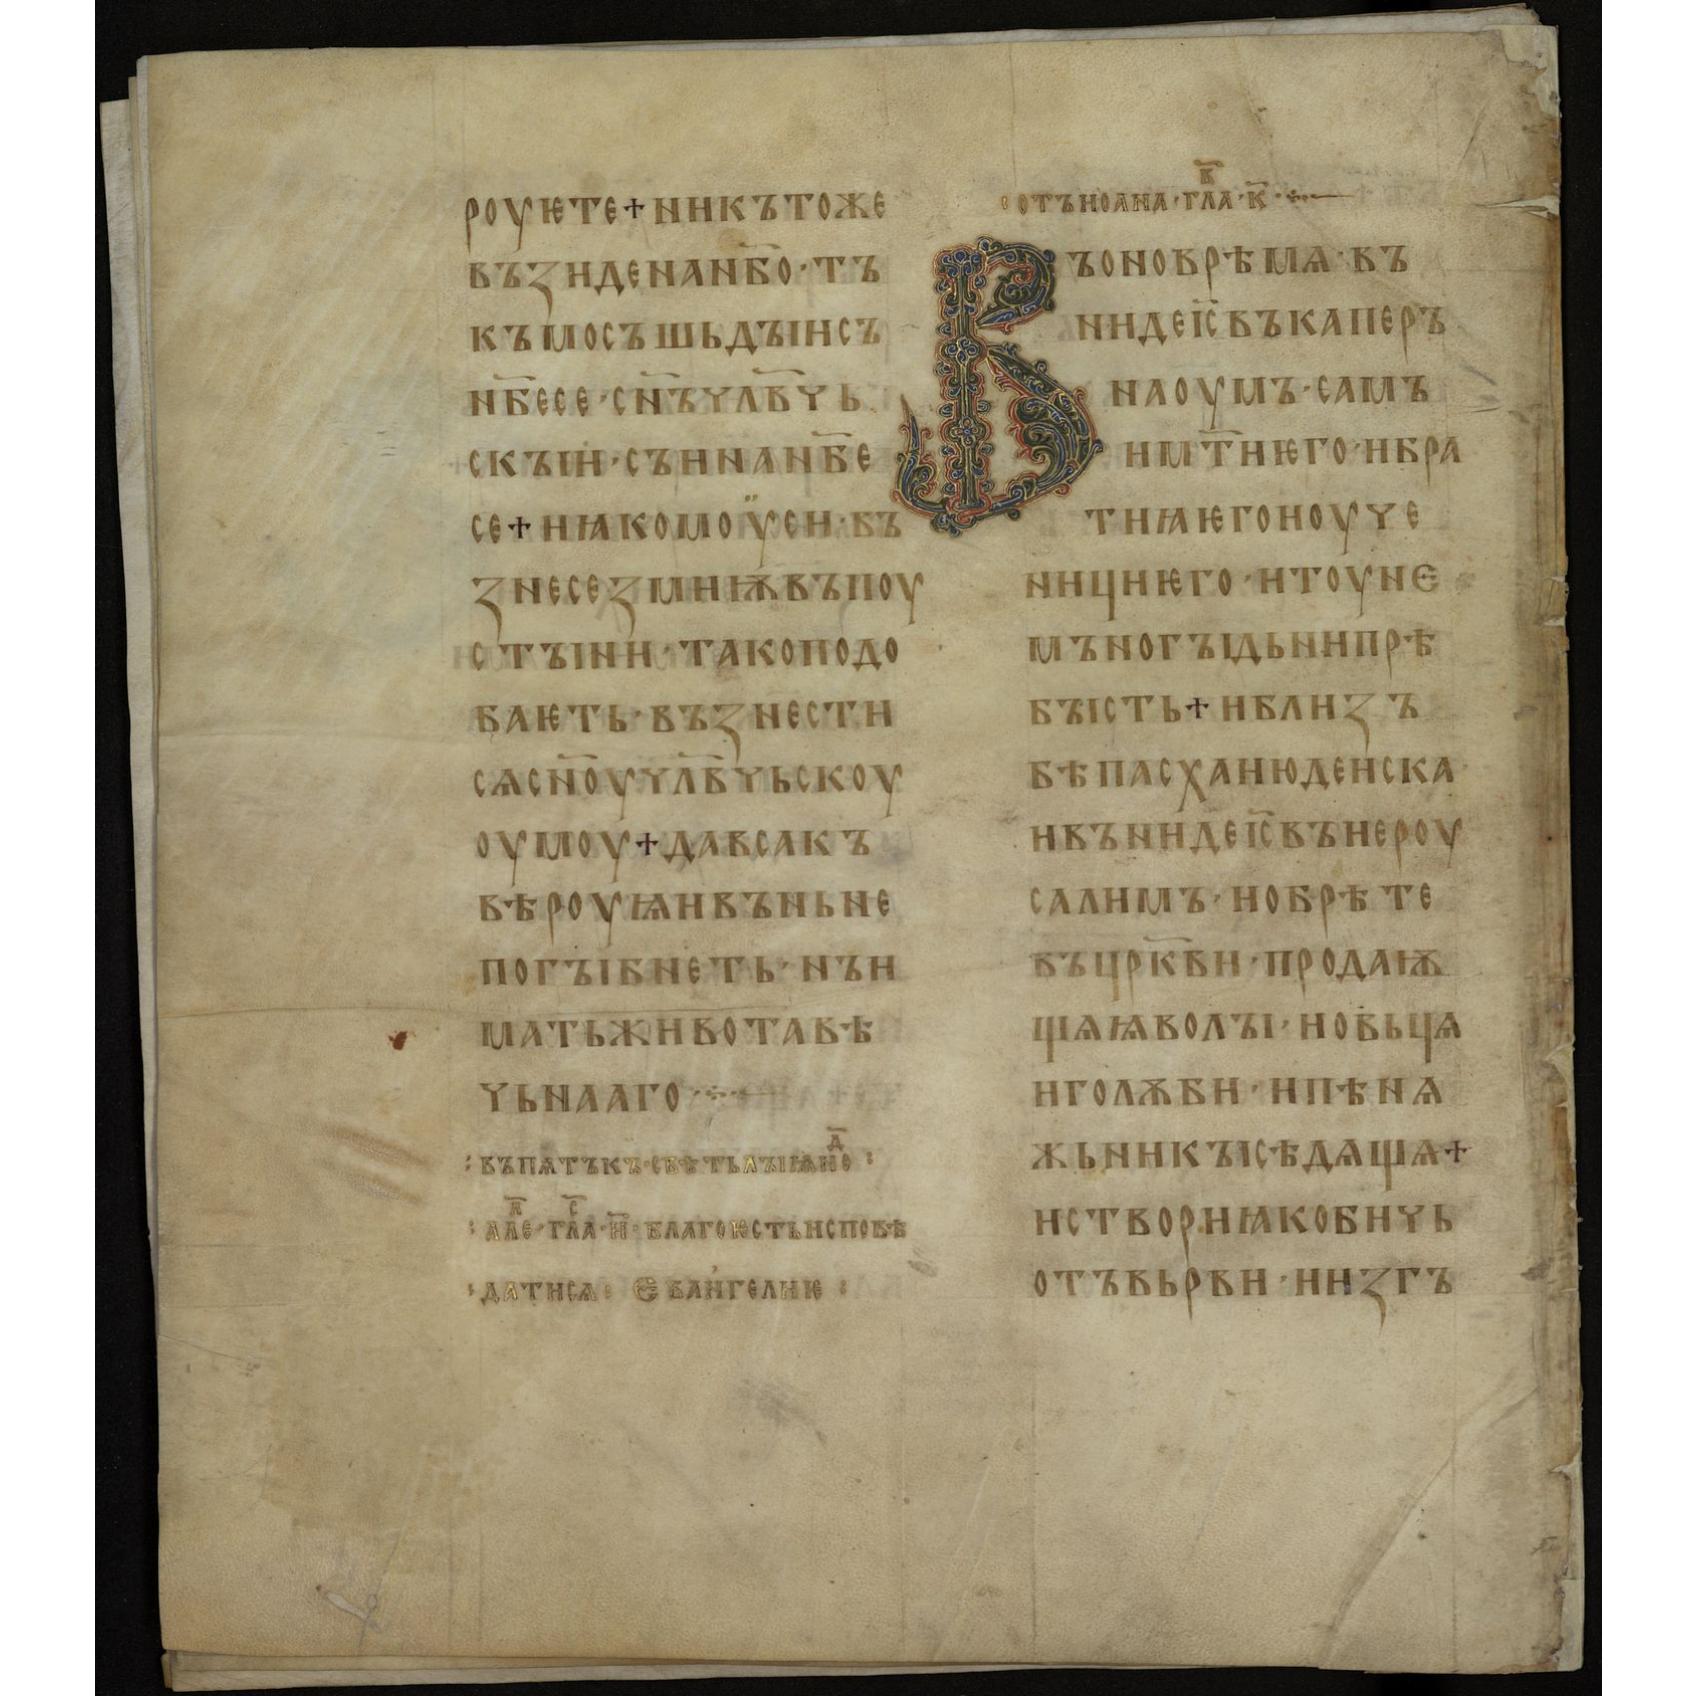 роуѥте+никътоже
възиденан҃бо·тъ
къмосъшьдъіисъ
н҃бесе·сн҃ъчл҃вчь
скъіи·съинан҃бе
се+иꙗкомоѵсеи·въ
знесезмиѭвъпоу
стъіни·такоподо
баѥть·възнести
сѧсн҃оучл҃вчьскоу
оумоу+давсакъ
вѣроуꙗивъньне
погъібнеть·нъи
матьживотавѣ
чьнааго·
:въпѧтъкъ·свѣтьлъіѩнед҃:
:алел҃·глас҃·и҃·благоѥстьисповѣ
:датисѧ: Еваньгелиѥ:
:отъиоана·глав҃·к҃·
Въоноврѣмѧ·въ
нидеіс҃въкаперъ
наоумъ·самъ
имт҃иѥго·ибра
тиꙗѥгоиоуче
нициѥго·итоуне
мъногъідьнипрѣ
бъість+иблизъ
бѣпасхаиюдеиска
ивънидеіс҃въиероу
салимъ·иобрѣте
въцрк҃ви·продаѭ
щѧꙗволъі·иовьцѧ
иголѫби·ипѣнѧ
жьникъісѣдѧщѧ+
истворииꙗкобичь
отъвьрви·иизгъ